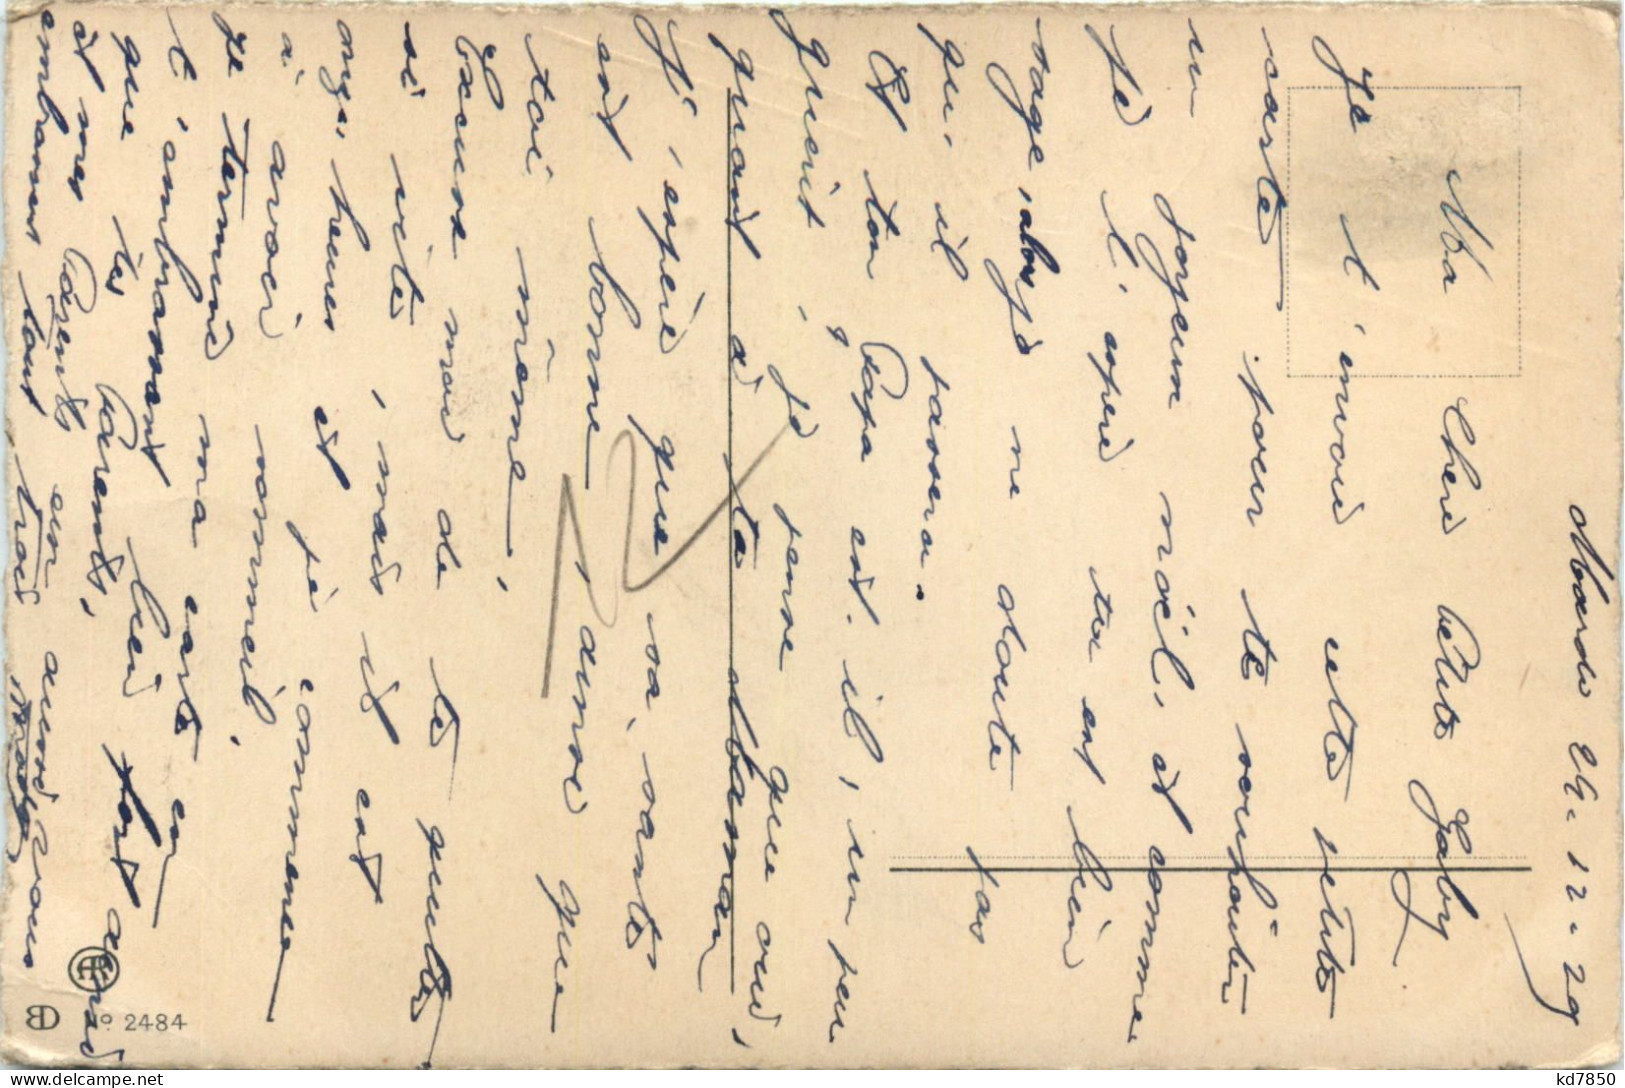 Mardi 24.12.29
Ma Cheré Petite Gaby
Je t'envoie cette petite
carte pour te souhaiter
un joyeux noël, et comme
je l'espère tu est bien
sage, alors je ne doute pas
qu'il passera.
Et ton Papa est-il, un peu
guerit, je pense que oui,
quant à ta Maman
J'espère que sa santé
est bonne, ainsi que
toi même.
Excuse moi de te quitter
si vite, mais il est
onze heures et je commence
à avoir sommeil.
Je termine ma carte en
t'embrassant bien fort ainsi
que tes Parents,
et mes Parents en
embrassent tous trois
No 2484
kd7850